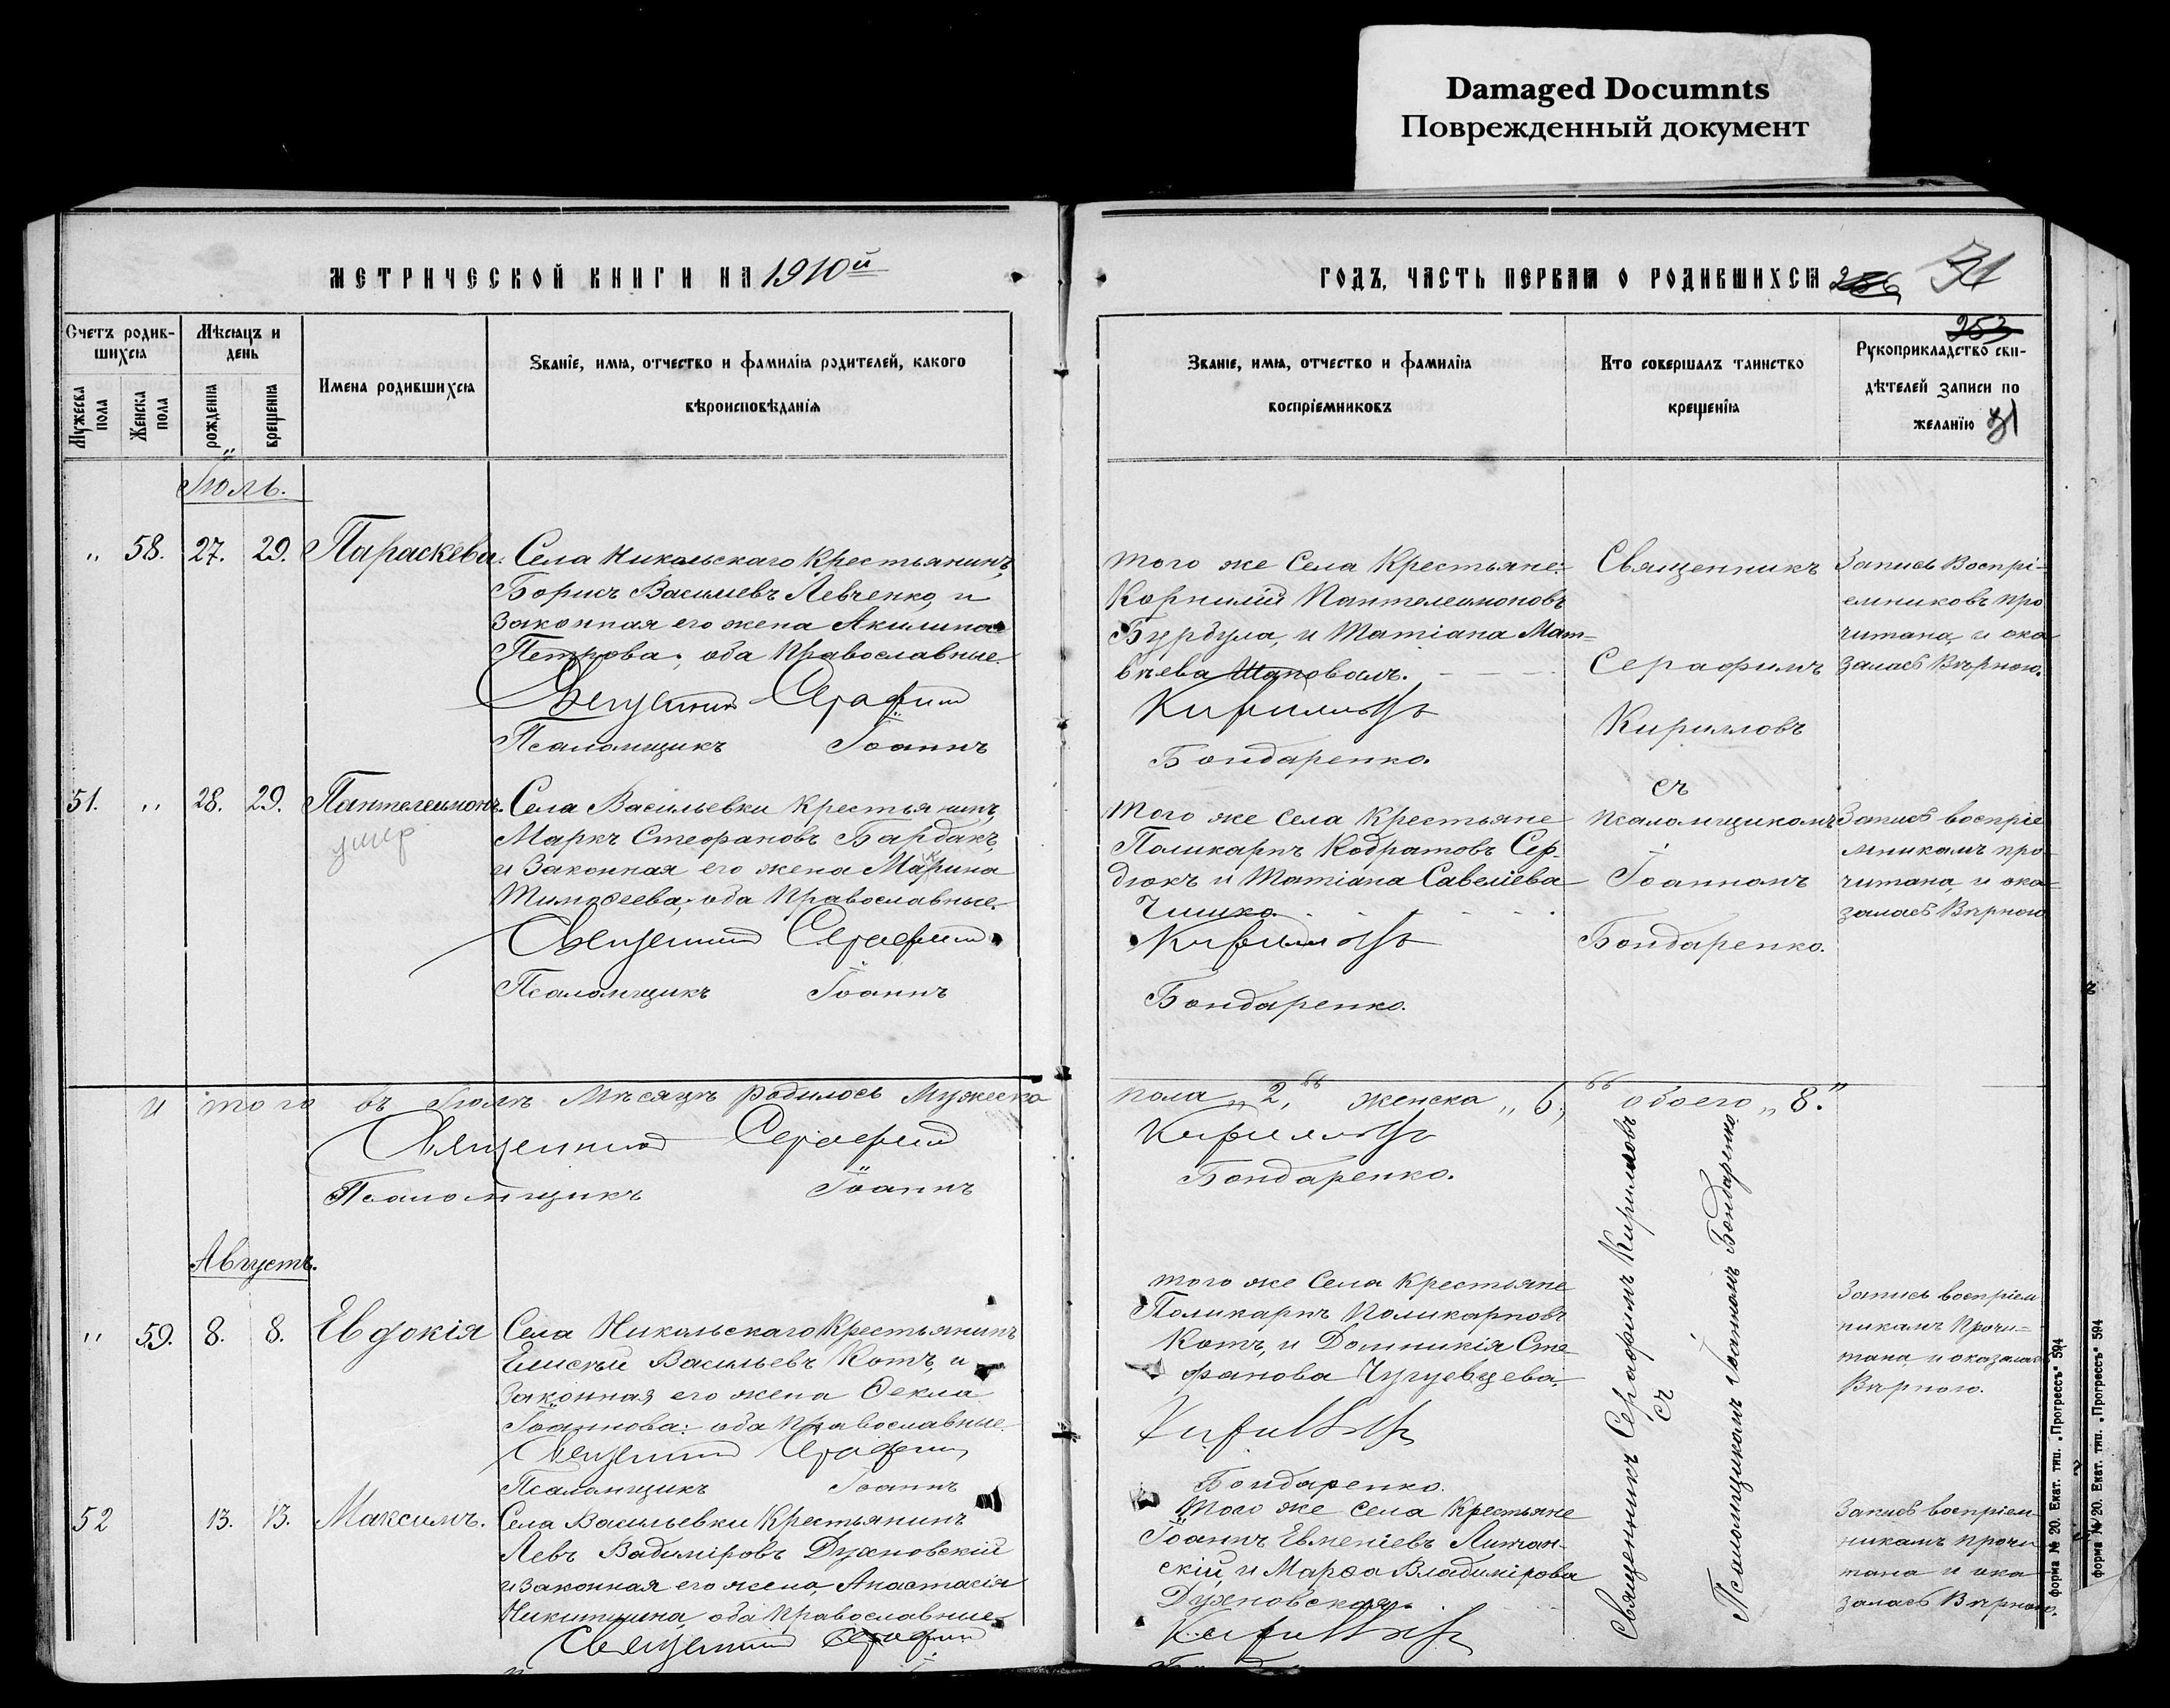 Damaged Documnts
Поврежденный документ
МЕТРИЧЕСКОЙ КНИГИ НА 1910й
ГОДЪ, ЧАСТЬ ПЕРВАЯ О РОДИВШИХСЯ
31
253
Счетъ родив-
шихся
Мѣсяцъ и
день
Мужеска
пола
Женска
пола
рождения
крещения
Имена родившихся
Званіе, имя, отчество и фамилія родителей, какого
вѣроисповѣданія
Званіе, имя, отчество и фамилія
воспріемниковъ
Кто совершалъ таинство
крещенія
Рукоприкладство сви-
дѣтелей записи по
желанію 31
Іюль.
„ 58. 27. 29. Параскева.
Села Никольскаго Крестьянинъ
Борисъ Васильевъ Левченко, и
Законная его жена Акилина
Петрова; оба Православные.
Священникъ Серафимъ
Псаломщикъ Іоаннъ
того же Села Крестьяне:
Корнилій Пантелеимоновъ
Бурбула, и Татіана Мат-
вѣева Шаповалъ.
Кирилловъ
Бондаренко.
Священникъ
Серафимъ
Кирилловъ
съ
псаломщикомъ
Іоанномъ
Бондаренко.
Запись Воспрі-
емниковъ про
читана, и ока
залась Вѣрною.
51. „ 28. 29. Пантелеимонъ.
умер
Села Васильевки Крестьянинъ
Маркъ Стефановъ Бардакъ,
и Законная его жена Марина
Тимоѳеева; оба Православные.
Священникъ Серафимъ
Псаломщикъ Іоаннъ
Того же села Крестьяне
Поликарпъ Кодратовъ Сер-
дюкъ и Татіана Савеліева
Чишко.
Кирилловъ
Бондаренко.
Запись воспріе
мникамъ про-
читана, и ока-
залась Вѣрною
И того въ Іюлѣ Мѣсяцѣ родилось Мужеска
пола „2," женска „6," обоего „8."
Священникъ Серафимъ
Кирилловъ
Псаломщикъ Іоаннъ
Бондаренко.
Августъ.
„ 59. 8. 8. Евдокія
Села Никольскаго Крестьянинъ
Елисѣй Васильевъ Котъ, и
Законная его жена Ѳекла
Іоаннова: оба Православные.
Священникъ Серафимъ
Псаломщикъ Іоаннъ
того же Села Крестьяне
Поликарпъ Поликарповъ
Котъ, и Домникія Сте
фанова Чугуевцева.
Кирилловъ
Бондаренко.
Священникъ Серафимъ Кирилловъ
съ
Псаломщикомъ Іоанномъ Бондаренко
Запись воспріем
никамъ Прочи-
тана и оказалась
Вѣрною.
52 13. 13. Максимъ.
Села Васильевки Крестьянинъ
Левъ Вадиміровъ Духновскій
и Законная его жена, Анастасія
Никитична, оба Православные
Священникъ Серафимъ
Того же села Крестьяне
Іоаннъ Евменіевъ Литан-
скій, и Марѳа Владимірова
Духновская.
Кирилловъ
Запись воспріем-
никамъ прочи
тана и ока
залась Вѣрною.
форма № 20. Екат. тип. „Прогрессъ" 594
форма № 20. Екат. тип. „Прогрессъ" 594